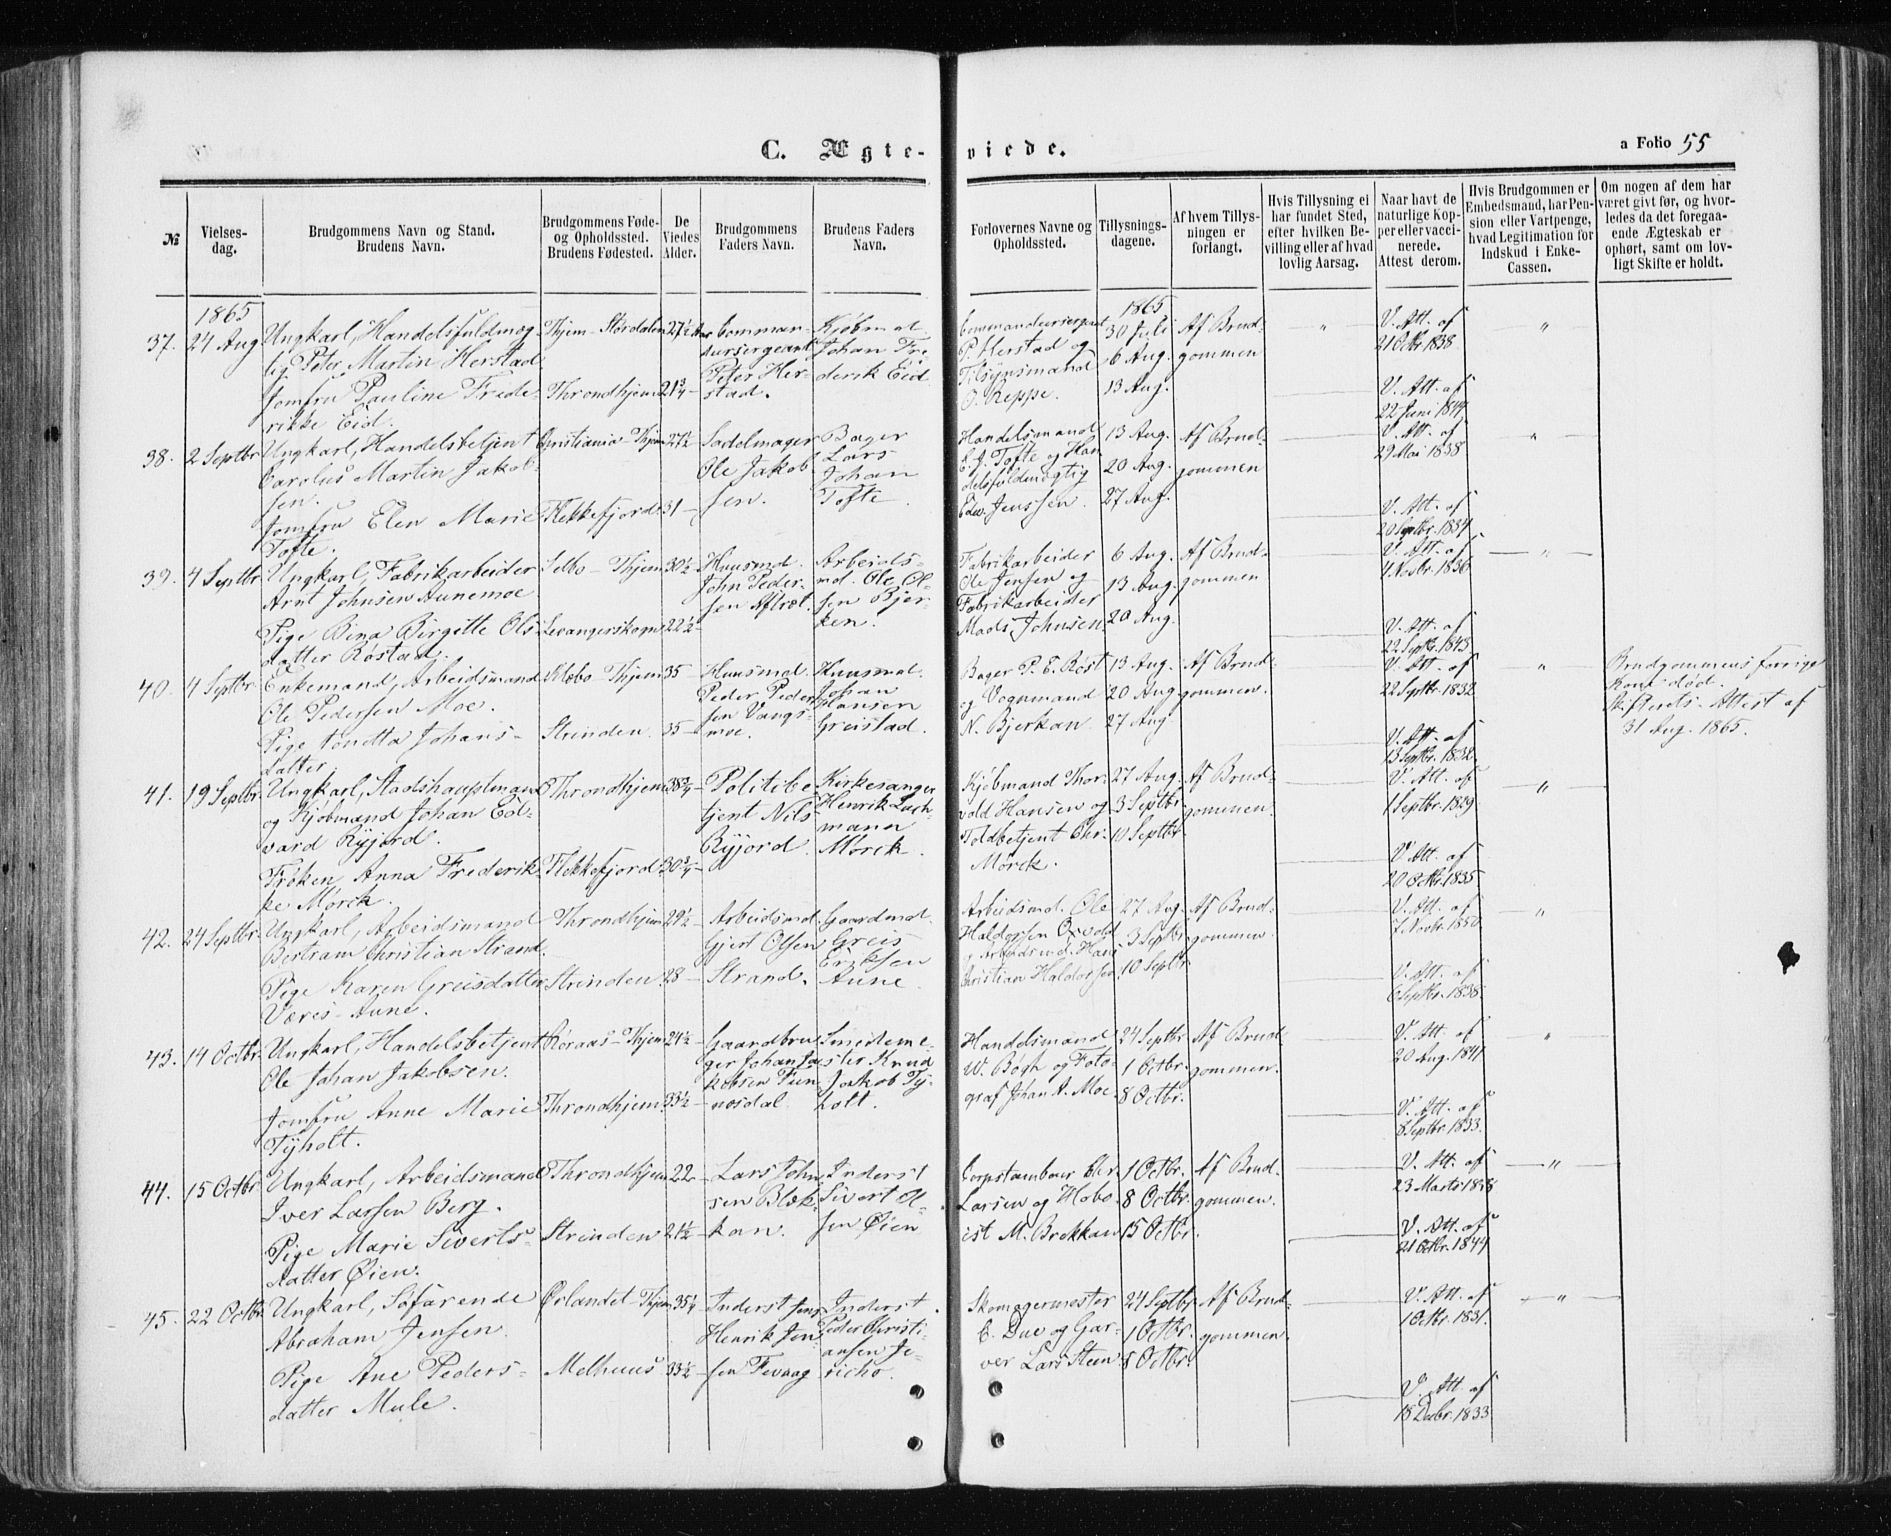 C. Ægte- viede.
a Folio 55
№
Vielses-
dag.
Brudgommens Navn og Stand.
Brudens Navn.
Brudgommens Føde-
og Opholdssted.
Brudens Fødested.
De
Viedes
Alder.
Brudgommens
Faders Navn.
Brudens Faders
Navn.
Forlovernes Navne og
Opholdssted.
Tillysnings-
dagene.
Af hvem Tillys-
ningen er
forlangt.
Hvis Tillysning ei
har fundet Sted,
efter hvilken Be-
villing eller af hvad
lovlig Aarsag.
Naar havt de
naturlige Kop-
per eller vacci-
nerede.
Attest derom.
Hvis Brudgommen er
Embedsmand, har Pen-
sion eller Vartpenge,
hvad Legitimation for
Indskud i Enke-
Cassen.
Om nogen af dem har
været givt før, og hvor-
ledes da det foregaa-
ende Ægteskab er
ophørt, samt om lov-
ligt Skifte er holdt.
1865
37. 24 Aug
Ungkarl, Handelsfuldmæg-
tig Peter Martin Herstad
Jomfru Pauline Frede-
rikke Eid.
Thjem - Stördalen
Throndhjem
27½ Aar
21¾ -
Comman-
dursergeant
Peter Her-
stad.
Kjöbmd.
Johan Fre-
derik Eid
Commandeursergeant
P. Herstad og
Tilsynsmand
O. Reppe.
1865
30 Juli
6 Aug.
13 Aug.
Af Brud-
gommen
"
V. Att. af
21 Octbr 1838
V. Att. af
22 Juni 1844
"
38. 2 Septbr
Ungkarl, Handelsbetjent
Carolus Martin Jakob-
sen.
Jomfru Elen Marie
Tofte.
Christiania - Thjem
Flekkefjord
27½
31 -
Sadelmager
Ole Jakob-
sen.
Bager
Lars
Johan
Tofte
Handelsmand
E. J. Tofte og Han-
delsfuldmægtig
Edv. Jenssen.
13 Aug.
20 Aug.
27 Aug.
Af Brud-
gommen
V. Att. af
29 Mai 1838
V. Att. af
20 Septbr. 1834
"
39. 4 Septbr
Ungkarl, Fabrikarbeider
Arnt Johnsen Aunemoe
Pige Bina Birgitte Ols-
datter Röstad.
Selbo - Thjem
Levangerskogn
30½
22½ -
Huusmd.
John Peder-
sen Aftræt.
Arbeids-
md. Ole Ol-
sen Bjer-
ken.
Fabrikarbeider
Ole Jensen og
Fabrikarbeider
Mads Johnsen
6 Aug.
13 Aug.
20 Aug.
Af Brud-
gommen
V. Att. af
4 Novbr. 1836
V. Att. af
22 Septbr. 1843
"
40. 4 Septbr
Enkemand, Arbeidsmand
Ole Pedersen Moe.
Pige Johans-
datter.
Klæbo - Thjem
Strinden
35 -
35 -
Huusmd.
Peder Peder-
sen Vangs-
moe.
Huusmd.
Johan
Hansen
Greistad.
Bager P. E. Röst
og Vognmand
N. Bjerkan.
13 Aug.
20 Aug
27 Aug
Af Brud-
gommen.
V. Att. af
22 Septbr. 1832
V. Att. af
13 Septbr. 1832
"
Brudgommens forrige
Kone död.
Skifterets-Attest af
31 Aug. 1865.
41. 19 Septbr
Ungkarl, Stadshauptmand
og Kjöbmand Johan Ed-
vard Ryjord.
Fröken Anna Frederik-
ke Mörck.
Throndhjem
Flekkefjord
38¾ -
30¾ -
Politibe-
tjent Nils
Ryjord.
Kirkesanger
Henrik Lach-
mann
Mörck.
Kjöbmand Thor-
vald Hansen og
Toldbetjent Chr.
Mörck.
27 Aug.
3 Septbr
10 Septbr
Af Brud-
gommen.
V. Att. af
1 Septbr. 1829
V. Att. af
20 Octbr. 1835
"
42. 24 Septbr
Ungkarl, Arbeidsmand
Bertram Christian Strand.
Pige Karen Greisdatter
Væres-Aune.
Throndhjem
Strinden
29½
28 -
Arbeidsmd.
Gjert Olsen
Strand.
Gaardmd.
Greis
Eriksen
Aune
Arbeidsmd. Ole
Haldorsen Oxvold
og Arbeidsmd. Hans
Christian Haldorsen
27 Aug.
3 Septbr
10 Septbr
Af Brud-
gommen.
V. Att. af
7 Novbr. 1850
V. Att. af
6 Septbr. 1838.
"
43. 14 Octbr
Ungkarl, Handelsbetjent
Ole Johan Jakobsen.
Jomfru Anne Marie
Tyholt.
Röraas - Thjem
Throndhjem
24½ -
33½
Gaardbru-
ger Johan Ja-
kobsen Fun-
næsdal.
Smedeme-
ster Knud
Jackob Ty-
holt.
Handelsmand
W. Bögh og Foto-
graf Johan A. Moe.
24 Septbr
1 Octbr.
8 Octbr.
Af Brud-
gommen.
V. Att. af
20 Aug. 1841
V. Att. af
8 Septbr. 1833.
"
44. 15 Octbr
Ungkarl, Arbeidsmand
Iver Larsen Berg.
Pige Marie Siverts-
datter Øien.
Throndhjem
Strinden
22 -
21½ -
Lars John-
sen Blæk-
kan.
Inderst
Sivert Ol-
sen Øien
Corpstambour Chr.
Larsen og Hobo-
ist M. Brækkan
1 Octbr.
8 Octbr.
15 Octbr.
Af Brud-
gommen.
V. Att. af
23 Marts 1858
V. Att. af
21 Octbr. 1844
"
45. 22 Octbr
Ungkarl, Söfarende
Abraham Jensen.
Pige Ane Peders-
datter Mule.
Ørlandet - Thjem
Melhuus
35¼
33½ -
Inderst Jens
Henrik Jen-
sen Fevaag
Inderst
Peder Christi-
ansen Je-
richo.
Skomagermester
C. Due og Gar-
ver Lars Steen
24 Septbr
1 Octbr.
8 Octbr.
Af Brud-
gommen.
V. Att. af
1 Octbr. 1831.
V. Att. af
15 Decbr. 1833
"